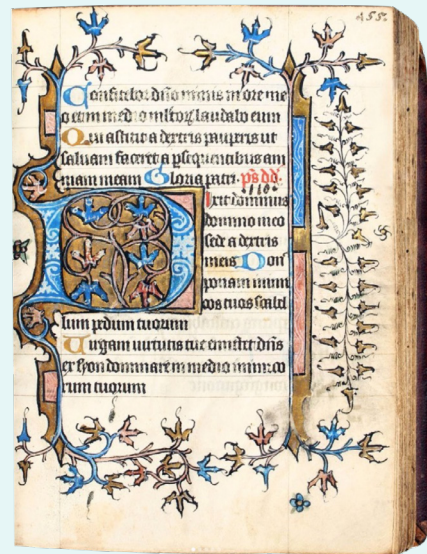 455.
Confitebor dño nimis in ore me
o et in medio multor laudabo eum
Qui astitit a dextris pauperis ut
saluam faceret a psequentibus an
imam meam Gloria patri. ps dd.
·110·
Dixit dominus
domino meo
sede a dextris
meis Don
ponam inimi
cos tuos scabel
lum pedum tuorum
Uirgam uirtutis tue emittet dñs
ex syon dominare in medio inimico
rum tuorum